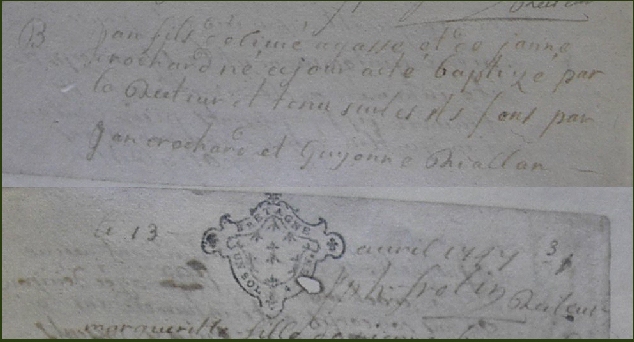 Recteur
B jan fils de aimé agasse et de janne
crochard né ce jour a eté baptizé par
le Recteur et tenu sur les fons par
Jan crochard et Guyonne Riallan
BRETAGNE
UN SOL
le 13 avril 1757 31
frotin Recteur
margueritte fille